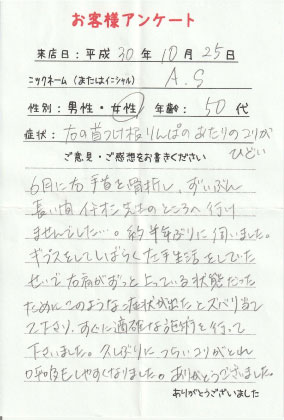 お客様アンケート
来店日：平成 30 年 10 月 25 日
ニックネーム（またはイニシャル） A.S
性別：男性・女性 年齢： 50 代
症状： 右の首つけ根りんぱのあたりのコリが
ひどい
ご意見・ご感想をお書きください
6月に右手首を骨折し、ずいぶん
長い間 先生のところへ行け
ませんでした…。約半年ぶりに伺いました。
ギプスをしてしばらくした手生活をしていた
せいで右肩がずっと上っている状態だった
ためにこのような症状が出たとズバリ当て
て下さり、すぐに適確な施術を行って
下さいました。久しぶりにつらいコリがとれ
呼吸もしやすくなりました。ありがとうございました。
ありがとうございました